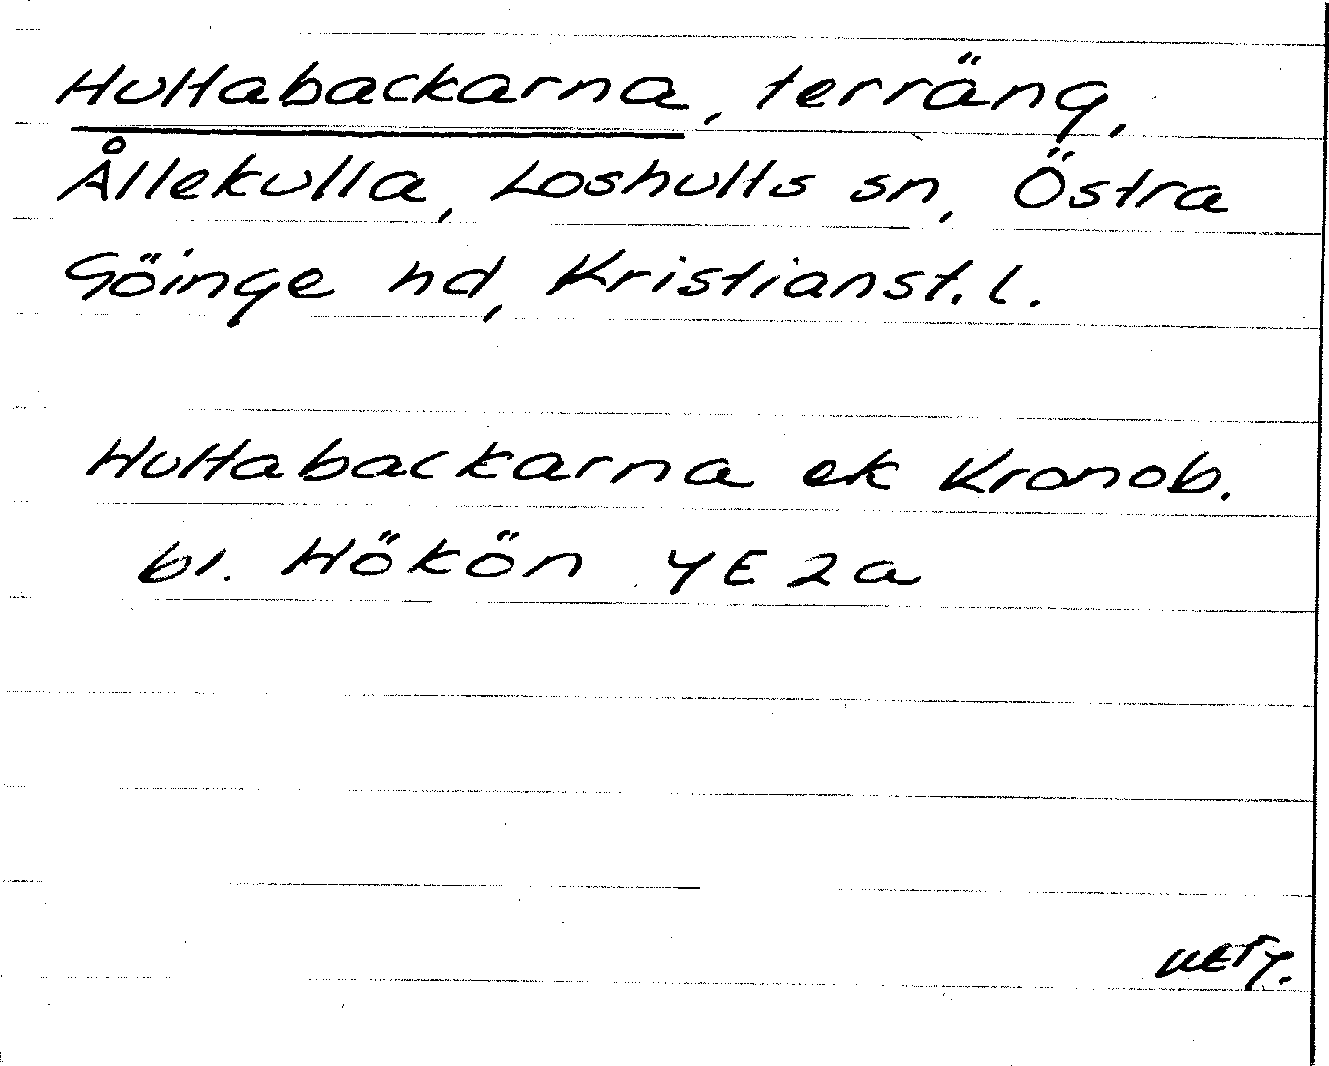 Hultabackarna, terräng,
Ållekulla, Loshults sn, Östra
Göinge hd, Kristianst. l.
Hultabackarna ek Kronob.
bl. Hökön 4E2a